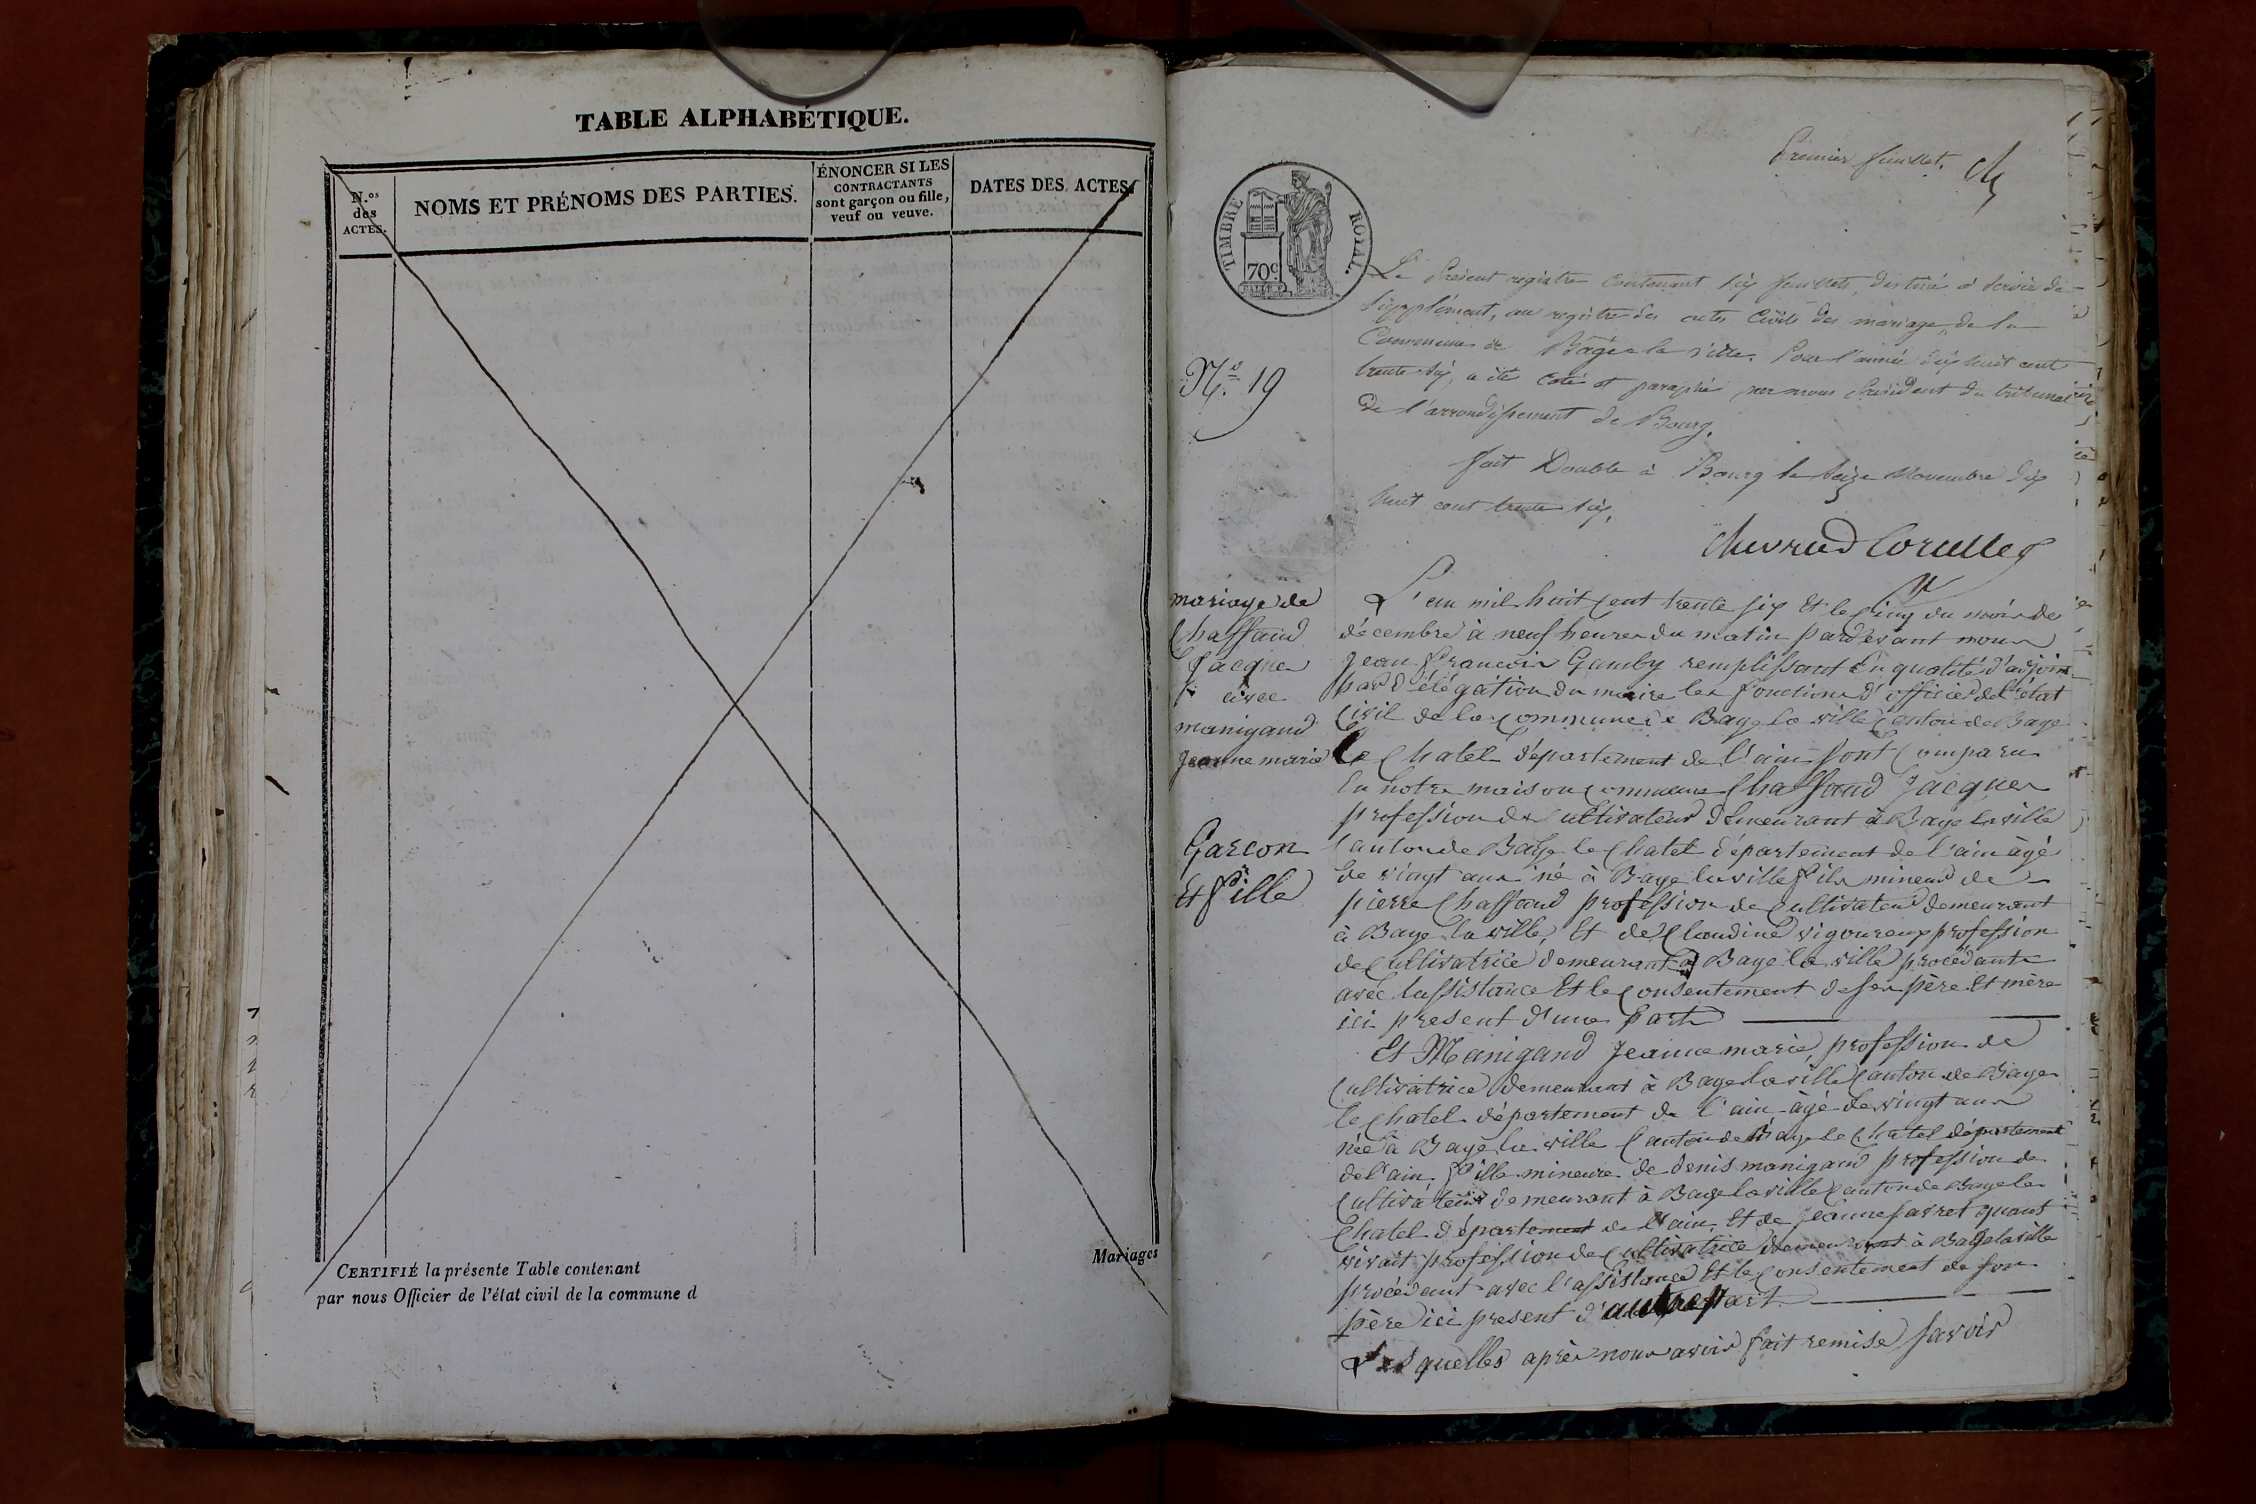 TABLE ALPHABÉTIQUE.
N.os des ACTES.
NOMS ET PRÉNOMS DES PARTIES.
ÉNONCER SI LES
CONTRACTANTS
sont garçon ou fille,
veuf ou veuve.
DATES DES ACTES
Mariages
CERTIFIÉ la présente Table contenant
par nous Officier de l'état civil de la commune d
Premier feuillet.
TIMBRE ROYAL.
70c
Le présent registre contenant six feuillets, destiné à servir de
supplément, au registre des actes civils des mariages de la
Commune de Bâgé la ville, pour l'année dix huit cent
trente six, a été coté et paraphé par nous Président du tribunal
de l'arrondissement de Bourg.
fait Double à Bourg le seize Novembre dix
huit cent trente six.
N.º 19
mariage de
Chaffaud
Jacques
avec
manigaud
Jeanne marie
Garcon
Et fille
L'an mil huit cent trente six Et le cinq du mois de
décembre à neuf heures du matin pardevant nous
Jean francois Gamby remplissant En qualité d'adjoint
par délégation du maire les fonctions d'officier de l'etat
Civil de la commune de Bage la ville Canton de Bage
le Chatel département de l'ain sont comparu
En notre maison commune Chaffaud Jacques
profession de cultivateur demeurant à Bage la ville
Canton de Bage le Chatel département de l'ain âgé
de vingt ans né à Bage la ville fils mineur de
pierre Chaffaud profession de Cultivateur demeurant
à Bage la ville, Et de Claudine vigoureux profession
de Cultivatrice demeurant à Bage la ville procédant
avec lassistance Et le Consentement de ses père Et mère
ici present d'une part
Et Manigaud Jeanne marie, profession de
Cultivatrice demeurant à Bage la ville Canton de Bage
le Chatel département de l'ain âgé de vingt ans
née à Bagé la ville Canton de Bage le Chatel département
de l'ain, fille mineure de denis manigaud profession de
Cultivateur demeurant à Bage la ville Canton de Bage le
Chatel département de l'ain, Et de Jeanne favret quant
vivait profession de Cultivatrice demeurant à Bage la ville
procédant avec l'assistance Et le Consentement de son
père ici present d'autre part.
Lesquelles après nous avoir fait remise savoir